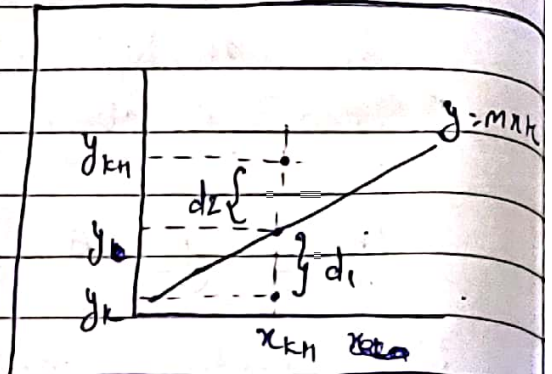 y=mxk
yk+1
d2
yk
d1
yk
xk+1